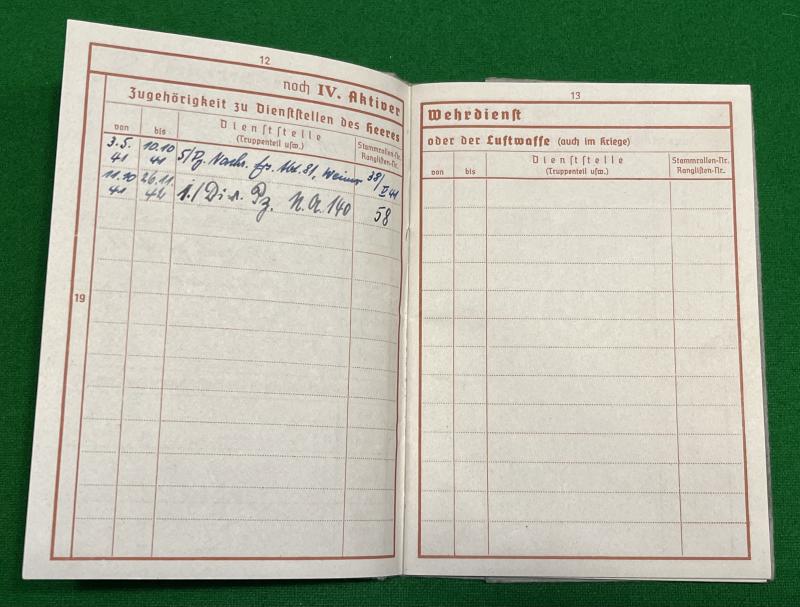 12
noch IV. Aktiver
Zugehörigkeit zu Dienststellen des Heeres
von
bis
Dienststelle
(Truppenteil usw.)
Stammrollen-Nr.
Ranglisten-Nr.
3.5. 10.10 5/Pz. Nachr. Abt. 81, Weimar 38/
41 41 V 41
11.10 26.11. 1./Div. Pz. N.A. 140 58
41 42
19
13
Wehrdienst
oder der Luftwaffe (auch im Kriege)
von
bis
Dienststelle
(Truppenteil usw.)
Stammrollen-Nr.
Ranglisten-Nr.